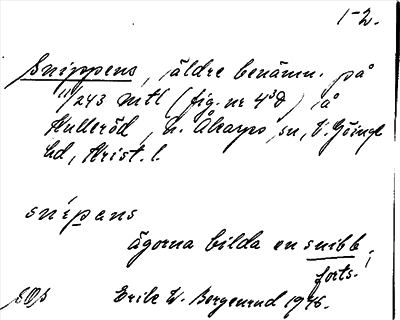 1-2.
Snippens, äldre benämn. på
11/243 mtl (fig. nr 4³d) å
Hulleröd, n. Åkarps sn, V. Göinge
hd, Krist. l.
snípans
ägorna bilda en snibb,
forts.
Erik W. Bergenrud 1946.